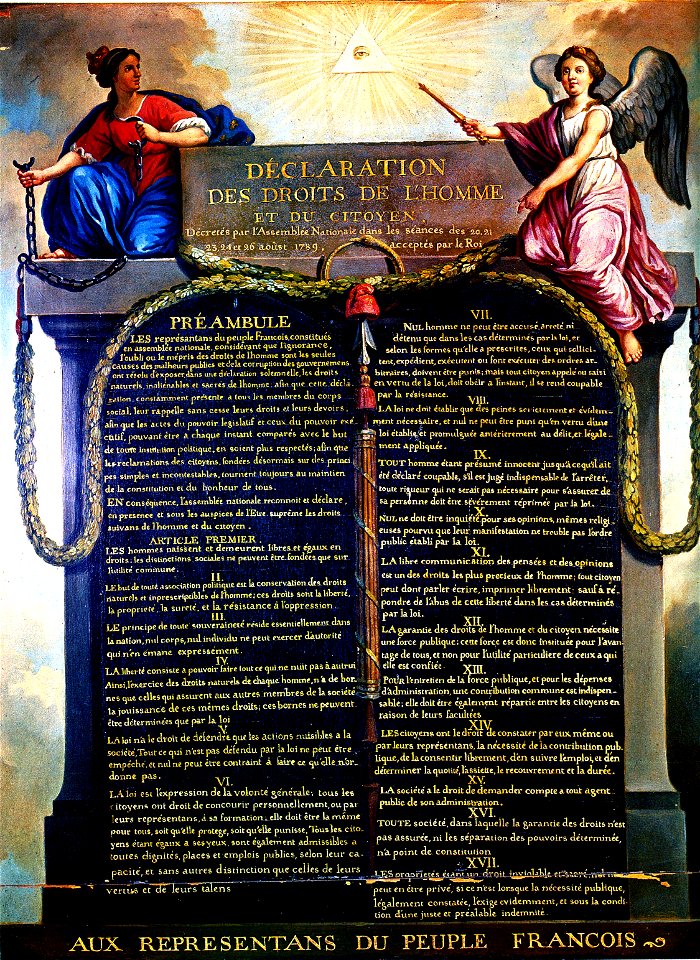 DÉCLARATION
DES DROITS DE L'HOMME
ET DU CITOYEN,
Décretés par l'Assemblée Nationale dans les séances des 20, 21
23, 24 et 26 aoûst 1789, acceptés par le Roi
PRÉAMBULE
LES représentans du peuple François, constitués
en assemblée nationale, considérant que l'ignorance,
l'oubli ou le mépris des droits de l'homme sont les seules
causes des malheurs publics et de la corruption des gouvernemens
ont résolu d'exposer dans une déclaration solemnelle, les droits
naturels, inaliénables et sacrés de l'homme: afin que cette décla-
ration, constamment présente à tous les membres du corps
social, leur rappelle sans cesse leurs droits et leurs devoirs,
afin que les actes du pouvoir législatif et ceux du pouvoir exé-
cutif, pouvant être à chaque instant comparés avec le but
de toute institution politique, en soient plus respectés; afin que
les reclamations des citoyens, fondées désormais sur des princi-
pes simples et incontestables, tournent toujours au maintien
de la constitution et du bonheur de tous.
EN conséquence, l'assemblée nationale reconnoit et déclare,
en presence et sous les auspices de l'Etre suprême les droits
suivans de l'homme et du citoyen.
ARTICLE PREMIER.
LES hommes naissent et demeurent libres et égaux en
droits; les distinctions sociales ne peuvent être fondées que sur
l'utilité commune.
II.
LE but de toute association politique est la conservation des droits
naturels et inprescriptibles de l'homme; ces droits sont la liberté,
la propriété, la sureté, et la résistance à l'oppression.
III.
LE principe de toute souveraineté réside essentiellement dans
la nation, nul corps, nul individu ne peut exercer d'autorité
qui n'en émane expressément.
IV.
LA liberté consiste à pouvoir faire tout ce qui ne nuit pas à autrui
Ainsi, l'exercice des droits naturels de chaque homme, n'a de bor-
nes que celles qui assurent aux autres membres de la société
la jouissance de ces mêmes droits; ces bornes ne peuvent
être déterminées que par la loi
V.
LA loi n'a le droit de défendre que les actions nuisibles à la
société. Tout ce qui n'est pas défendu par la loi ne peut être
empêché, et nul ne peut être contraint à faire ce qu'elle n'or-
donne pas.
VI.
LA loi est l'expression de la volonté générale; tous les
citoyens ont droit de concourir personnellement, ou par
leurs représentans, à sa formation; elle doit être la même
pour tous, soit qu'elle protege, soit qu'elle punisse, Tous les cito-
yens étant égaux à ses yeux, sont également admissibles à
toutes dignités, places et emplois publics, selon leur ca-
pacité, et sans autres distinction que celles de leurs
vertus et de leurs talens
VII.
NUL homme ne peut être accusé, arreté ni
détenu que dans les cas déterminés par la loi, et
selon les formes qu'elle a prescrites, ceux qui sollici-
tent, expédient, exécutent ou font exécuter des ordres ar-
bitraires, doivent être punis; mais tout citoyen appelé ou saisi
en vertu de la loi, doit obéir à l'instant, il se rend coupable
par la résistance.
VIII.
LA loi ne doit établir que des peines strictement et évidem-
ment nécessaire, et nul ne peut être puni qu'en vertu d'une
loi établie et promulguée antérierement au délit, et légale-
ment appliquée.
IX.
TOUT homme étant présumé innocent jusqu'à ce qu'il ait
été déclaré coupable, s'il est jugé indispensable de l'arrêter,
toute rigueur qui ne serait pas nécessaire pour s'assurer de
sa personne doit être sévèrement réprimée par la loi.
X.
NUL ne doit être inquiété pour ses opinions, mêmes religi-
euses pourvu que leur manifestation ne trouble pas l'ordre
public établi par la loi.
XI.
LA libre communication des pensées et des opinions
est un des droits les plus precieux de l'homme; tout citoyen
peut donc parler écrire, imprimer librement: sauf à ré-
pondre de l'abus de cette liberté dans les cas déterminés
par la loi.
XII.
LA garantie des droits de l'homme et du citoyen nécessite
une force publique; cette force est donc instituée pour l'avan-
tage de tous, et non pour l'utilité particuliere de ceux a qui
elle est confiée.
XIII.
Pour l'entretien de la force publique, et pour les dépenses
d'administration, une contribution commune est indispen-
sable; elle doit être également répartie entre les citoyens en
raison de leurs facultées
XIV.
LES citoyens ont le droit de constater par eux même ou
par leurs représentans, la nécessité de la contribution pub-
lique, de la consentir librement, d'en suivre l'emploi, et d'en
déterminer la quotité, l'assiette, le recouvrement et la durée.
XV.
LA société a le droit de demander compte a tout agent
public de son administration.
XVI.
TOUTE société, dans laquelle la garantie des droits n'est
pas assurée, ni les séparation des pouvoirs déterminée,
n'a point de constitution
XVII.
LES proprietés étant un droit inviolable et sacré, nul ne
peut en être privé, si ce n'est lorsque la nécessité publique,
légalement constatée, l'exige evidemment, et sous la condi-
tion d'une juste et préalable indemnité.
AUX REPRESENTANS DU PEUPLE FRANCOIS